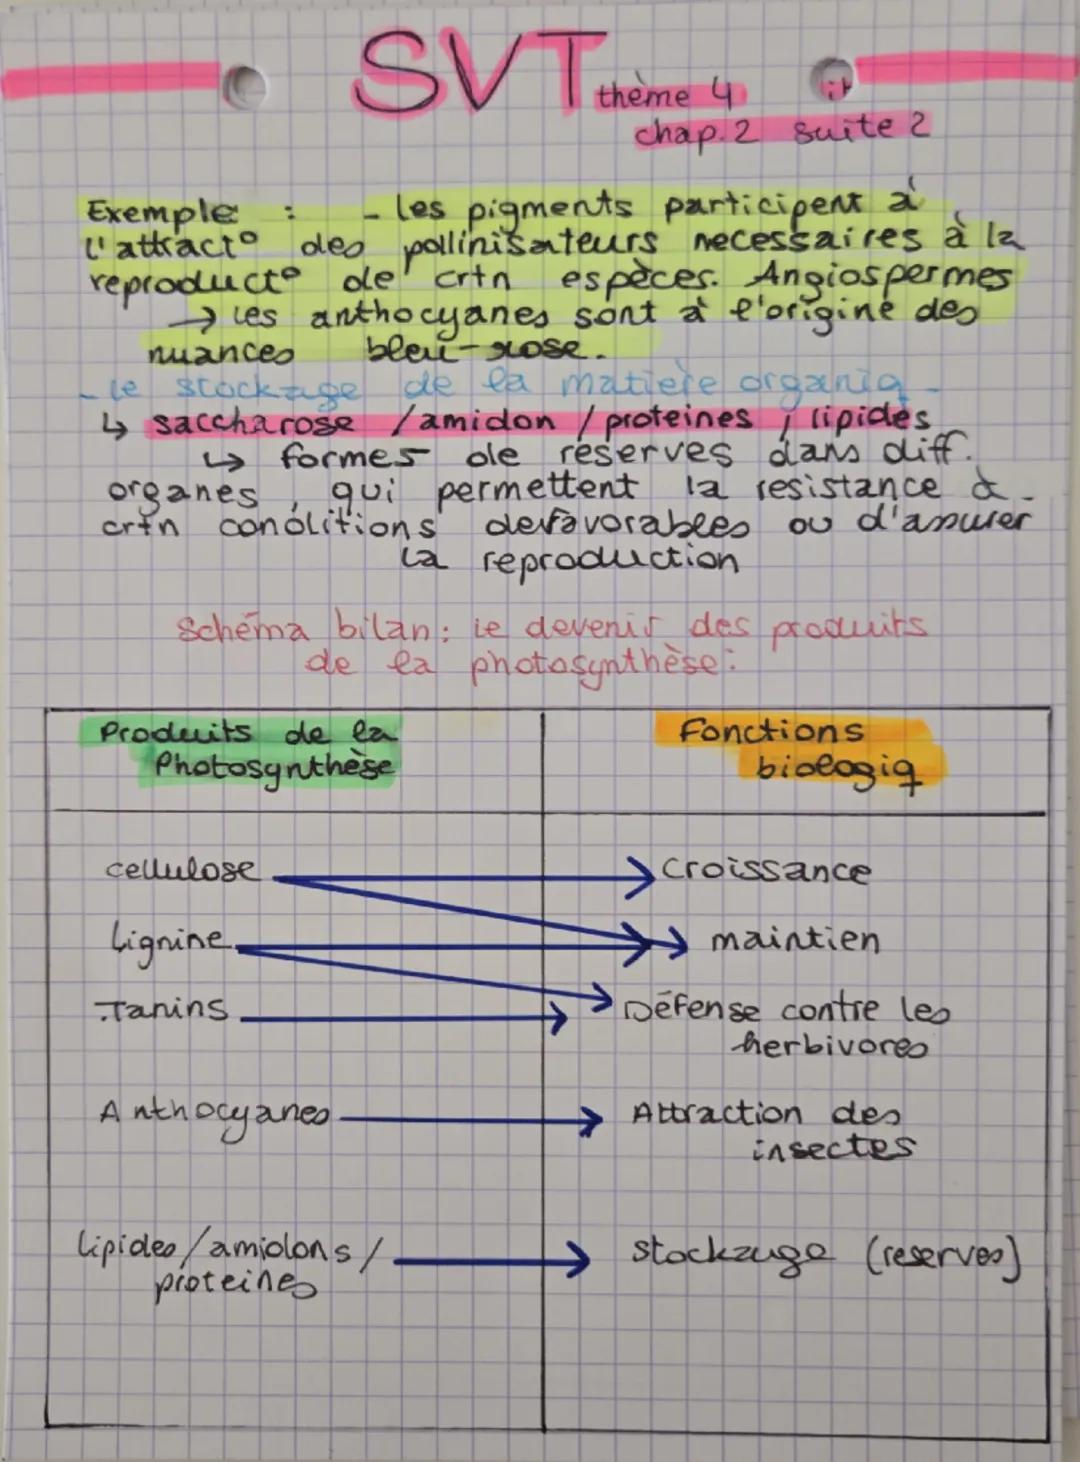 SVT
thème 4
chap.2 suite 2
Exemple : - les pigments participent à
l'attract° des pollinisateurs necessaires à la
reproduct° de crtn espèces. Angiospermes
→ les anthocyanes sont à l'origine des
nuances bleu-rose.
- le stockage de la matière organiq -
↳ saccharose / amidon / proteines / lipides
↳ formes de réserves dans diff.
organes, qui permettent la resistance à
crtn conditions defavorables ou d'assurer
la reproduction
Schéma bilan : le devenir des produits
de la photosynthèse :
Produits de la
Photosynthèse
Fonctions
biologiq
cellulose → Croissance
Lignine → maintien
Tanins → Défense contre les
herbivores
Anthocyanes → Attraction des
insectes
lipides/amidons/ → stockage (reserves)
proteines